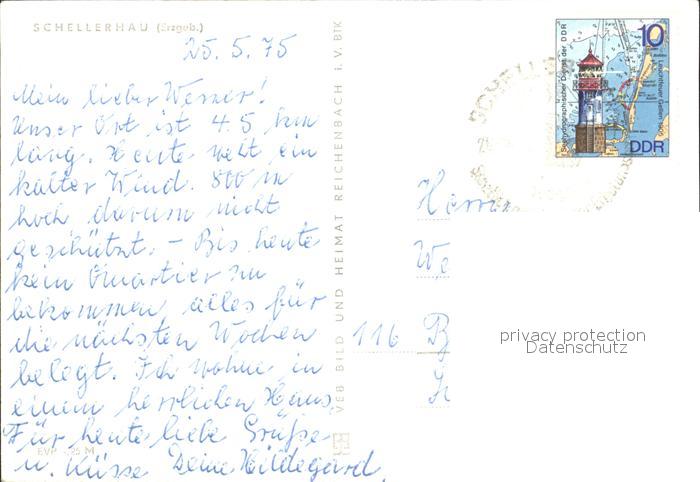 SCHELLERHAU (Erzgeb.)
25.5.75
Mein lieber Werner!
Unser Ort ist 4.5 km
lang. Heute weht ein
kalter Wind. 800 m
hoch darum nicht
geschützt. – Bis heute
kein Quartier zu
bekommen, alles für
die nächsten Wochen
belegt. Ich wohne in
einem herrlichen Haus.
Für heute liebe Grüße
u. Küsse Deine Hildegard.
EVP -,25 M
VEB BILD UND HEIMAT REICHENBACH i. V. BTK
10
Seehydrographischer Dienst der DDR
Leuchtfeuer Gellen 1905
DDR
Herrn
We
116 B
privacy protection
Datenschutz